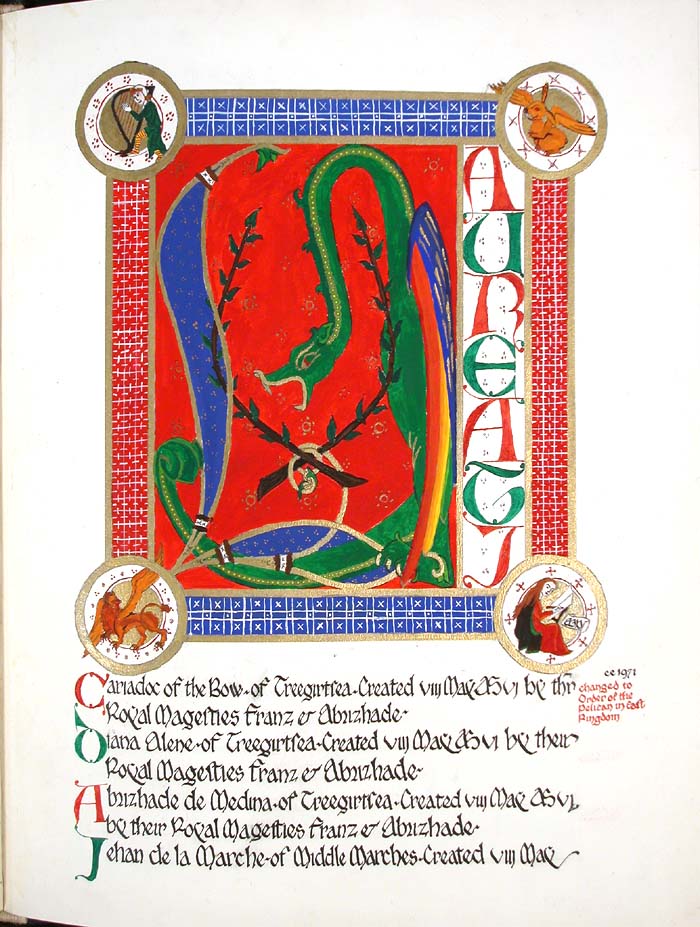 LAUREATI
Cariadoc of the Bow·of Treegirtsea·Created viij May AS VI by thr
Royal Magesties Franz & Abrizhade·
Diana Alene·of Treegirtsea·Created viij May AS VI by their
Royal Magesties Franz & Abrizhade·
Abrizhade de Medina·of Treegirtsea·Created viij May AS VI,
by their Royal Magesties Franz & Abrizhade·
Jehan de la Marche·of Middle Marches·Created viij May
c.e. 1971
changed to
Order of the
Pelican in East
Kingdom